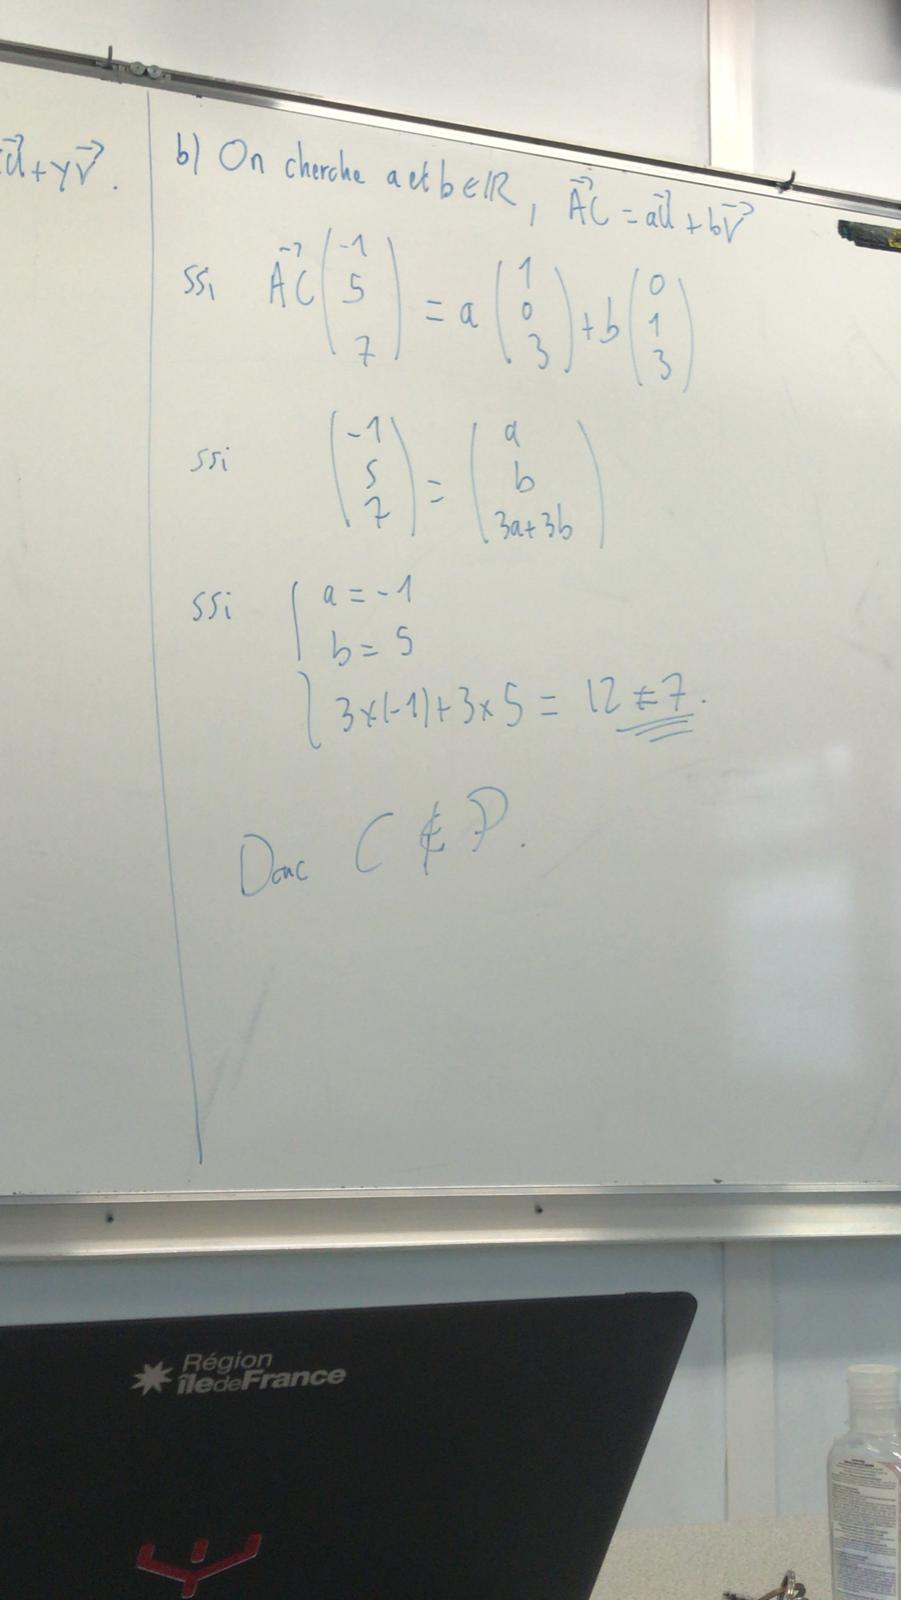 u⃗ + y v⃗ .
b) On cherche a et b ∈ ℝ, AC⃗ = a u⃗ + b v⃗
ssi AC⃗ (-1 5 7) = a (1 0 3) + b (0 1 3)
ssi (-1 5 7) = (a b 3a+3b)
ssi { a = -1
b = 5
3×(-1)+3×5 = 12 ≠ 7.
Donc C ∉ P.
Région
îledeFrance